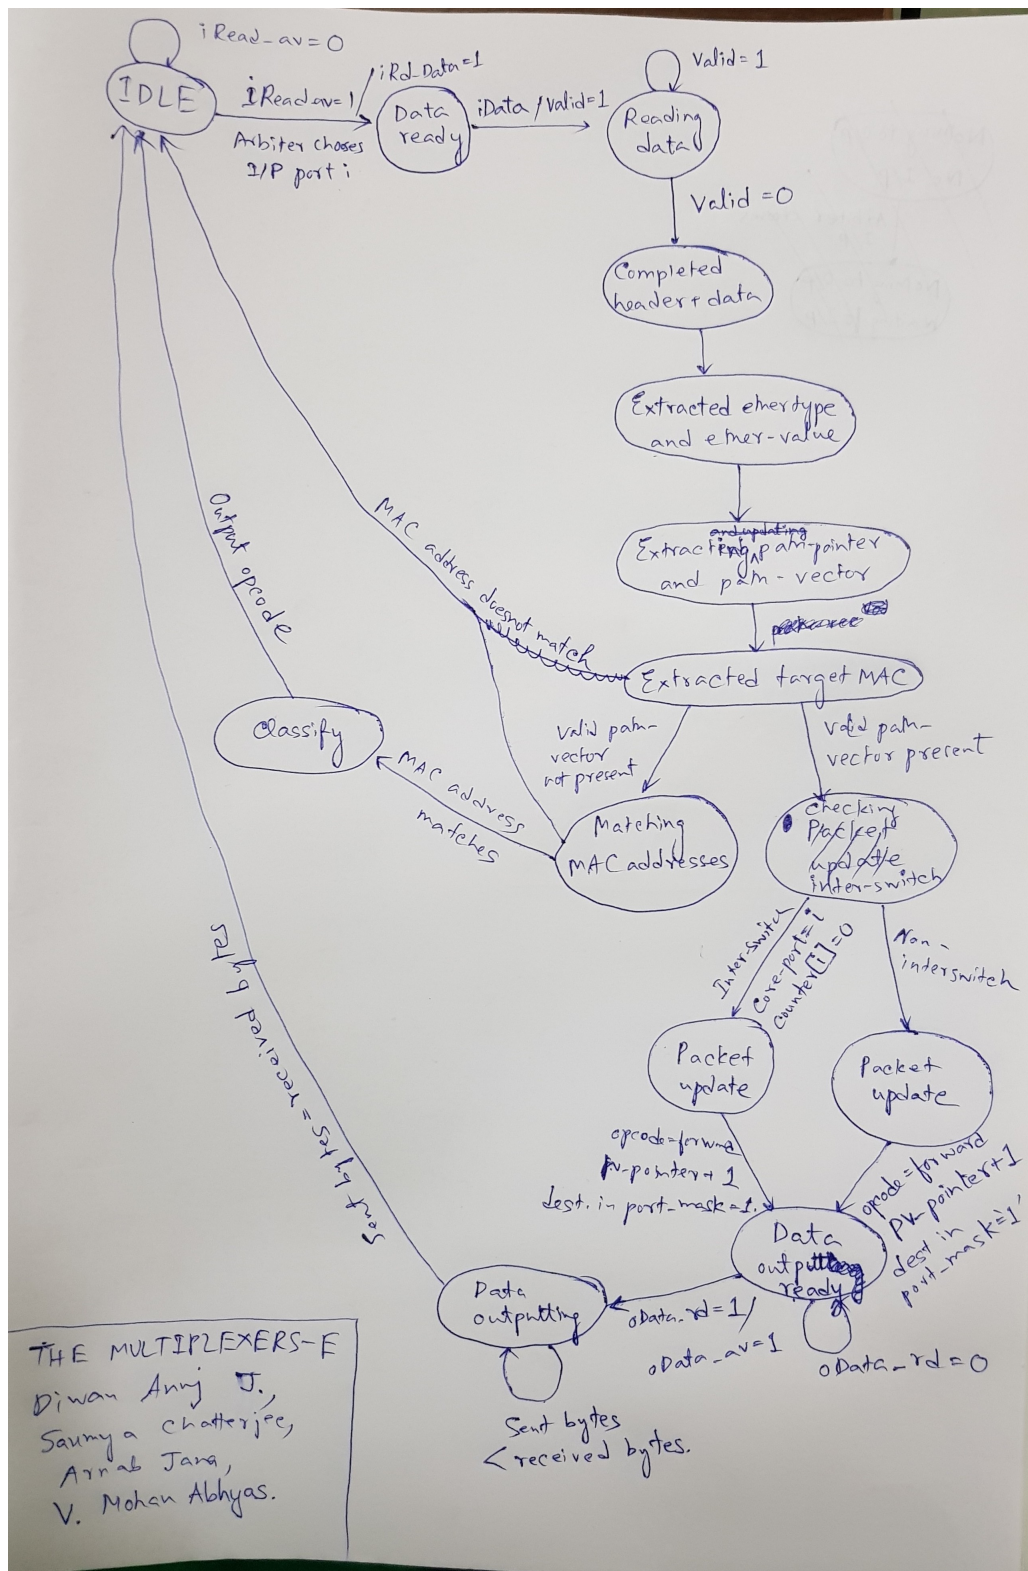 iRead_av=0
IDLE
iRead_av=1/iRd_Data=1
Arbiter chooses
I/P port i
Data
ready
iData/Valid=1
Valid=1
Reading
data
Valid=0
Completed
header+data
Extracted ethertype
and ether-value
and updating
Extracting path-pointer
and path-vector
Extracted target MAC
MAC address doesnot match
Output opcode
Classify
MAC address
matches
Valid path-
vector
not present
Valid path-
vector present
Matching
MAC addresses
Checking
Packet
update
inter-switch
Inter-switch
Core-port=i
counter[i]=0
Non-
interswitch
Packet
update
Packet
update
opcode=forward
pv-pointer+1
dest. in port_mask=1.
opcode=forward
pv-pointer+1
dest in
port_mask='1'
Data
output
ready
oData_rd=0
oData_rd=1/
oData_av=1
Data
outputting
Sent bytes
<received bytes.
Sent bytes=received bytes
THE MULTIPLEXERS-E
Diwan Anuj J.,
Saumya Chatterjee,
Arnab Jana,
V. Mohan Abhyas.